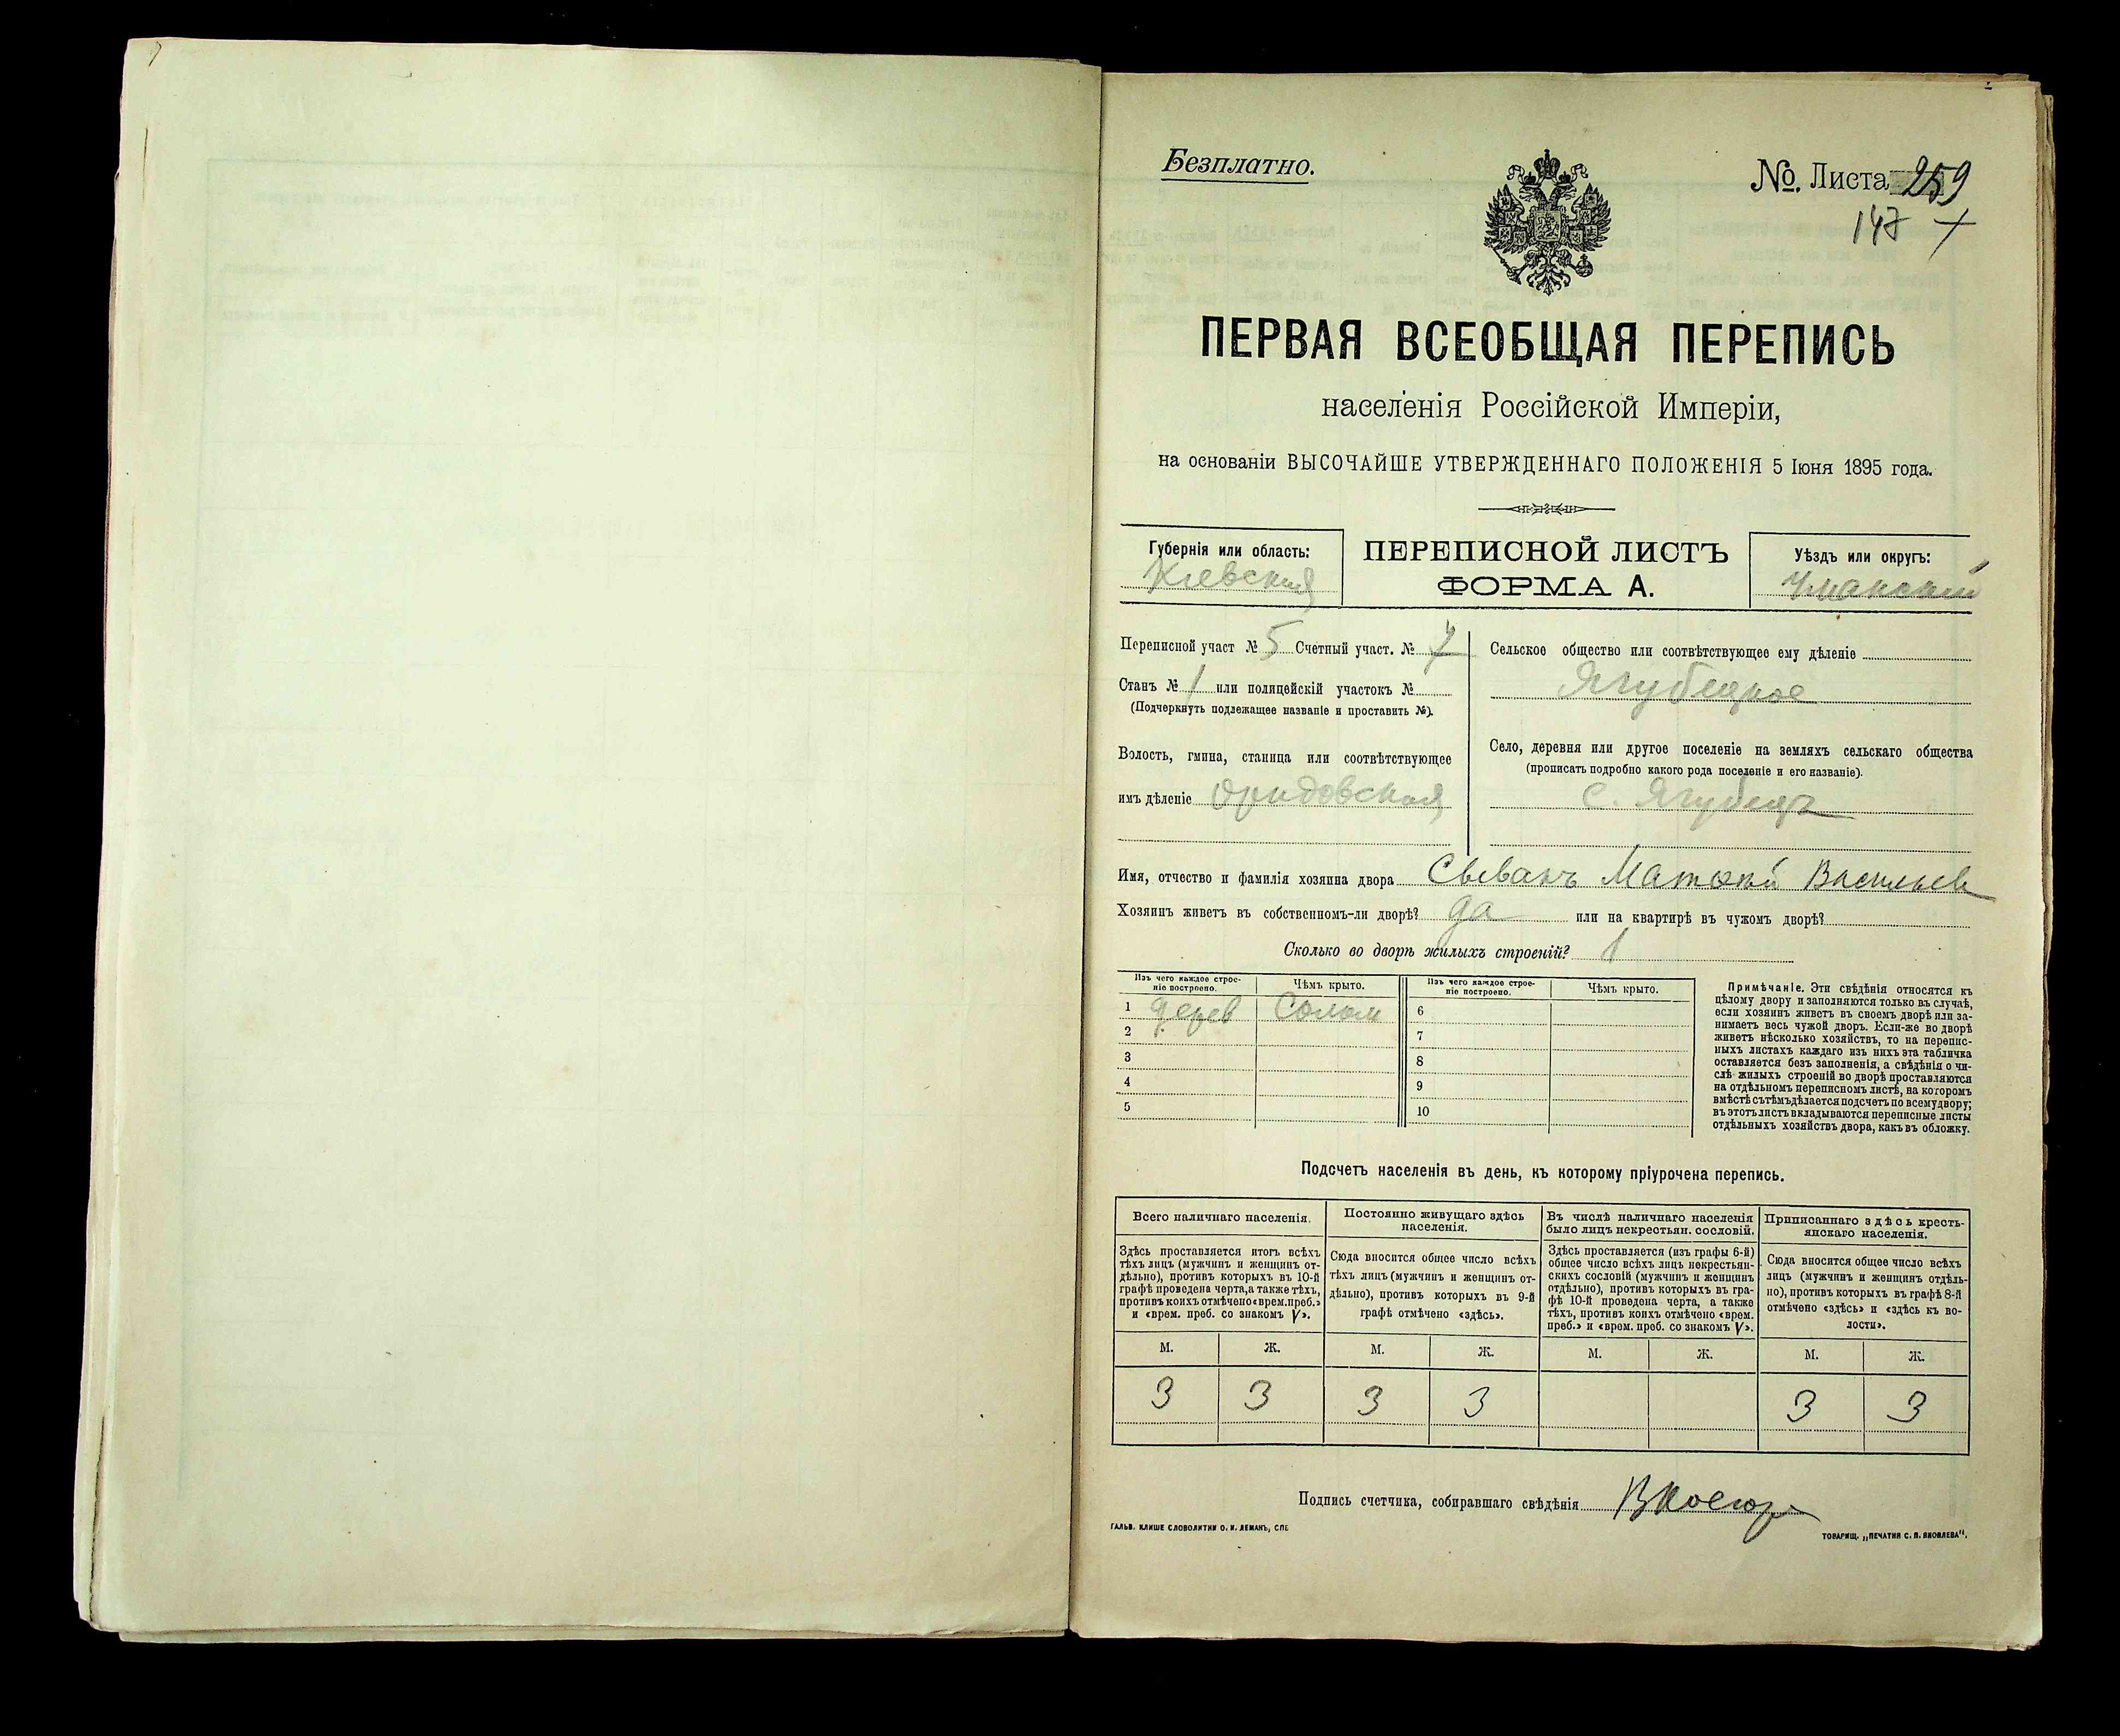 Безплатно.
№. Листа 259
147
ПЕРВАЯ ВСЕОБЩАЯ ПЕРЕПИСЬ
населенія Россійской Имперіи,
на основаніи ВЫСОЧАЙШЕ УТВЕРЖДЕННАГО ПОЛОЖЕНІЯ 5 Іюня 1895 года.
Губернія или область:
Кіевская
ПЕРЕПИСНОЙ ЛИСТЪ
ФОРМА А.
Уѣздъ или округъ:
Уманскій
Переписной участ № 5 Счетный участ. №
Станъ № 1 или полицейскій участокъ №
(Подчеркнуть подлежащее названіе и проставить №).
Волость, гмина, станица или соотвѣтствующее
имъ дѣленіе
Сельское общество или соотвѣтствующее ему дѣленіе
Ягубецкое
Село, деревня или другое поселеніе на земляхъ сельскаго общества
(прописать подробно какого рода поселеніе и его названіе).
с. Ягубецъ
Имя, отчество и фамилія хозяина двора
Хозяинъ живетъ въ собственномъ-ли дворѣ? да или на квартирѣ въ чужомъ дворѣ?
Сколько во дворѣ жилыхъ строеній? 1
Изъ чего каждое строе-
ніе построено.
Чѣмъ крыто.
Изъ чего каждое строе-
ніе построено.
Чѣмъ крыто.
1 дерев Солом
2
3
4
5
6
7
8
9
10
Примѣчаніе. Эти свѣдѣнія относятся къ
цѣлому двору и заполняются только въ случаѣ,
если хозяинъ живетъ въ своемъ дворѣ или за-
нимаетъ весь чужой дворъ. Если-же во дворѣ
живетъ нѣсколько хозяйствъ, то на перепис-
ныхъ листахъ каждаго изъ нихъ эта табличка
оставляется безъ заполненія, а свѣдѣнія о чи-
слѣ жилыхъ строеній во дворѣ проставляются
на отдѣльномъ переписномъ листѣ, на которомъ
вмѣстѣ съ тѣмъ дѣлается подсчетъ по всему двору;
въ этотъ листъ вкладываются переписные листы
отдѣльныхъ хозяйствъ двора, какъ въ обложку.
Подсчетъ населенія въ день, къ которому пріурочена перепись.
Всего наличнаго населенія.
Здѣсь проставляется итогъ всѣхъ
тѣхъ лицъ (мужчинъ и женщинъ от-
дѣльно), противъ которыхъ въ 10-й
графѣ проведена черта, а также тѣхъ,
противъ коихъ отмѣчено «врем. преб.»
и «врем. преб. со знакомъ V».
Постоянно живущаго здѣсь
населенія.
Сюда вносится общее число всѣхъ
тѣхъ лицъ (мужчинъ и женщинъ от-
дѣльно), противъ которыхъ въ 9-й
графѣ отмѣчено «здѣсь».
Въ числѣ наличнаго населенія
было лицъ некрестьян. сословій.
Здѣсь проставляется (изъ графы 6-й)
общее число всѣхъ лицъ некрестьян-
скихъ сословій (мужчинъ и женщинъ
отдѣльно), противъ которыхъ въ гра-
фѣ 10-й проведена черта, а также
тѣхъ, противъ коихъ отмѣчено «врем.
преб.» и «врем. преб. со знакомъ V».
Приписаннаго здѣсь кресть-
янскаго населенія.
Сюда вносится общее число всѣхъ
лицъ (мужчинъ и женщинъ отдѣль-
но), противъ которыхъ въ графѣ 8-й
отмѣчено «здѣсь» и «здѣсь къ во-
лости».
М. Ж. М. Ж. М. Ж. М. Ж.
3 3 3 3 3 3
Подпись счетчика, собиравшаго свѣдѣнія
ГАЛЬВ. КЛИШЕ СЛОВОЛИТНИ О. И. ЛЕМАНЪ, СПБ
ТОВАРИЩ. „ПЕЧАТНЯ С. П. ЯКОВЛЕВА".